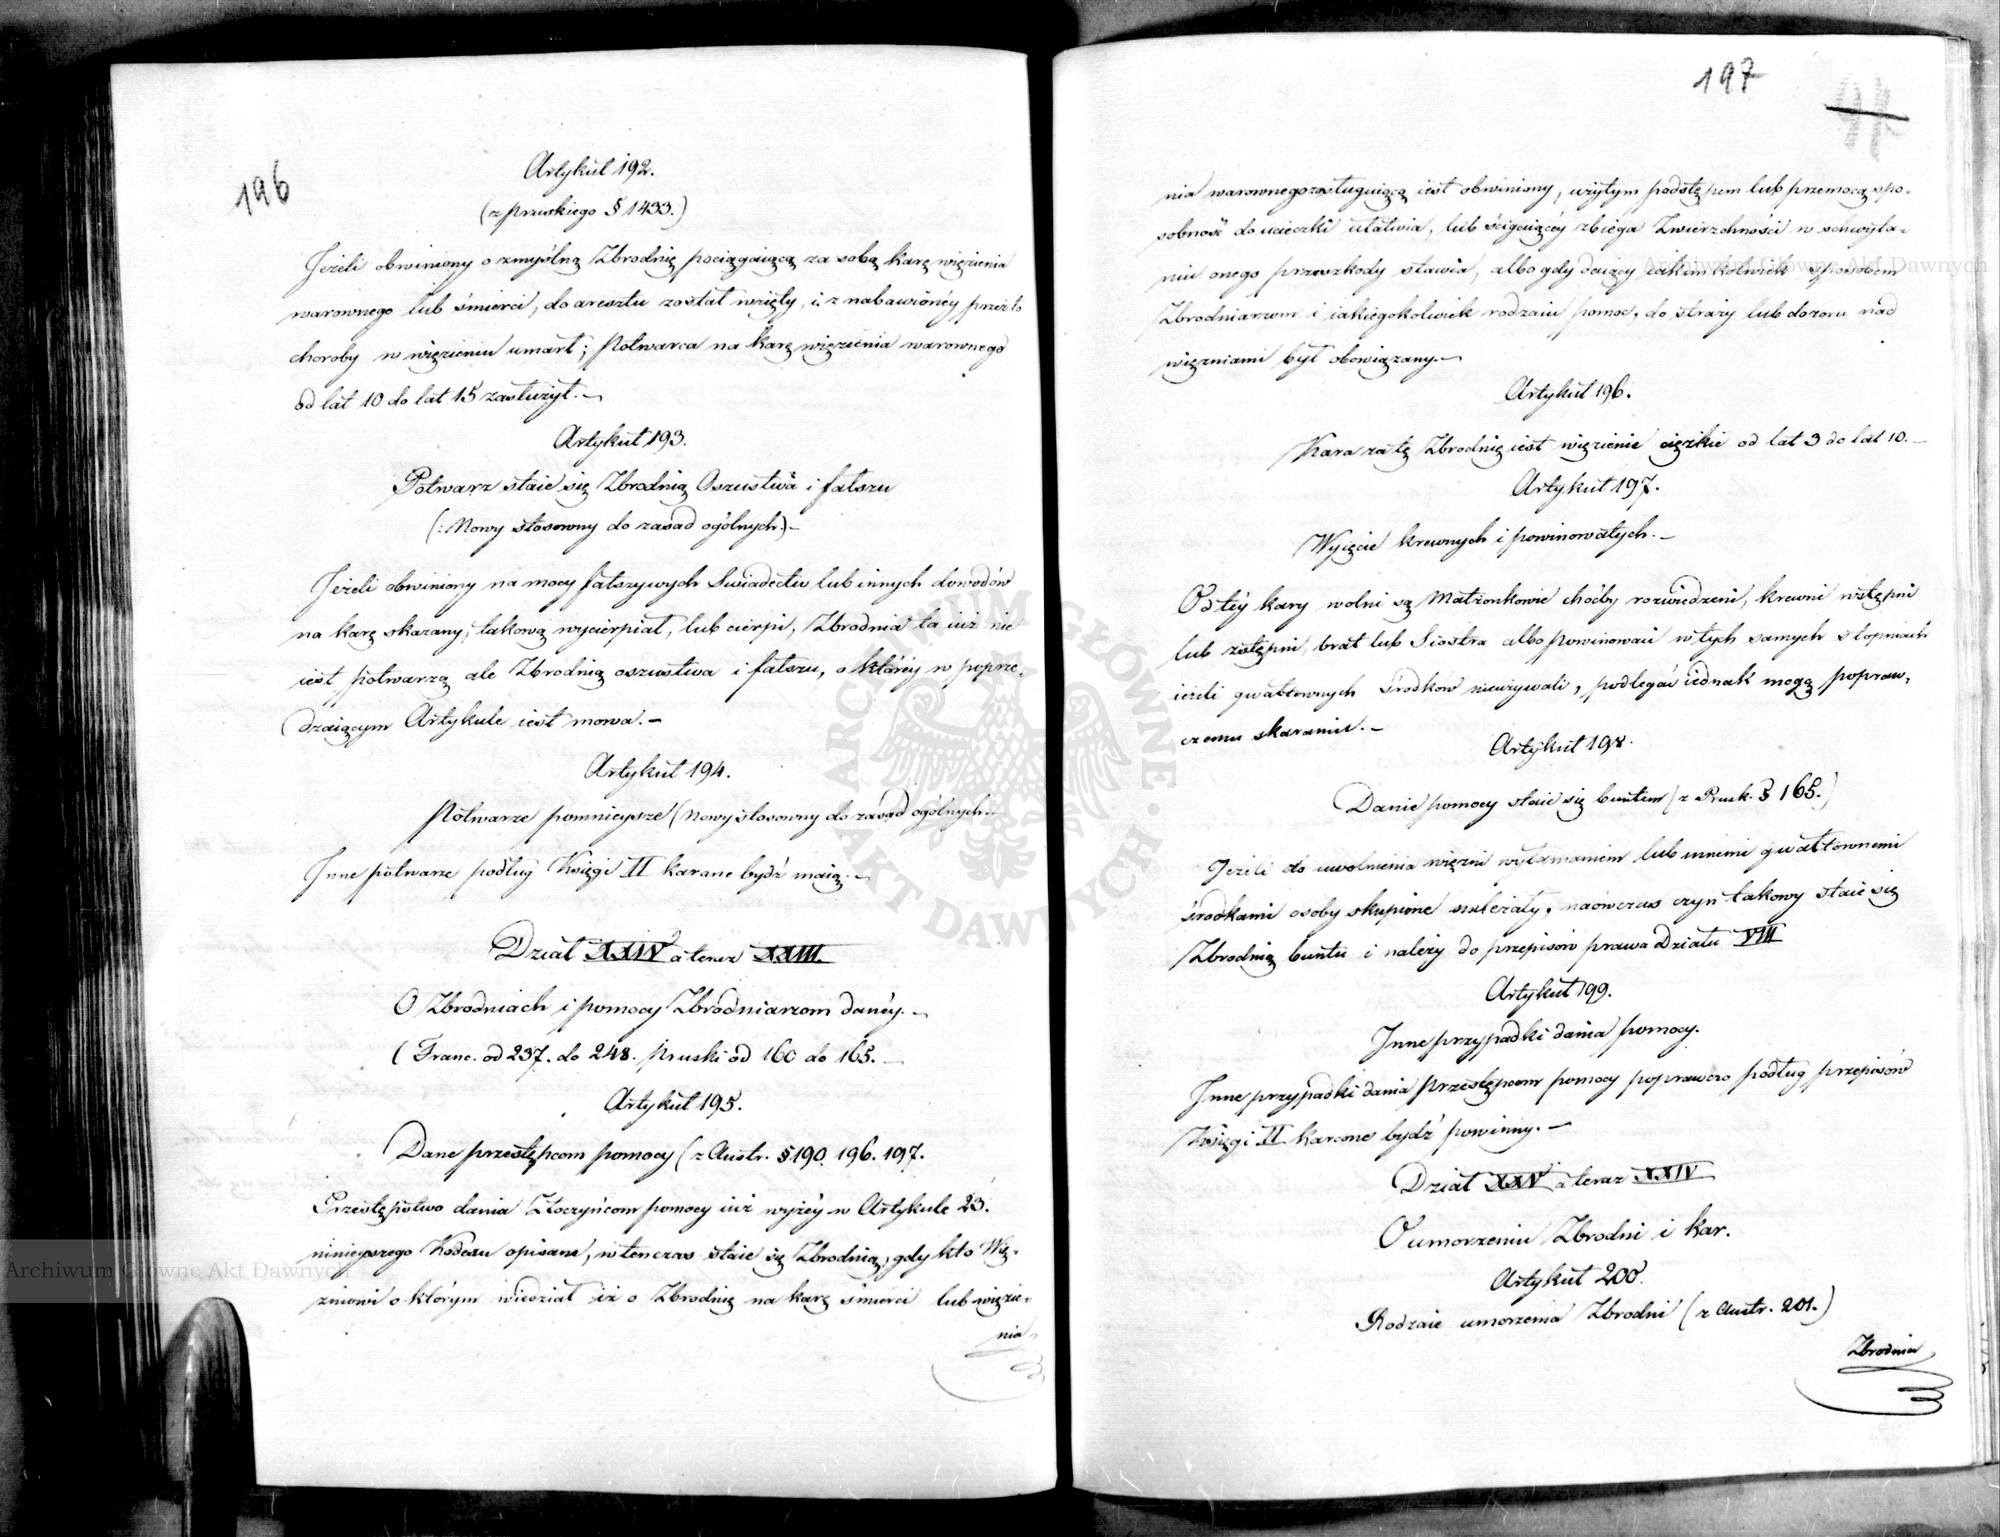 196
Artykuł 192.
(z pruskiego § 1433.)
Jeżeli obwiniony o zmyślną Zbrodnię pociągaiącą za sobą karę więzienia
warownego lub śmierci, do aresztu został wzięty, i z nabawionéy przez to
choroby w więzieniu umarł; Potwarca na karę więzienia warownego
od lat 10 do lat 15 zasłużył.—
Artykuł 193.
Potwarz staie się Zbrodnią Oszustwa i fałszu
(: Nowy stosowny do zasad ogólnych.)—
Jeżeli obwiniony na mocy fałszywych Swiadectw lub innych dowodów
na karę skazany, takową wycierpiał, lub cierpi, Zbrodnia ta iuż nie
iest potwarzą ale Zbrodnią oszustwa i fałszu, o któréy w poprze-
dzaiącym Artykule iest mowa.—
Artykuł 194.
Potwarze pomnieysze (Nowy stosowny do zasad ogólnych.—
Inne potwarze podług Księgi II karane bydź maią.—
Dział XXIV a teraz XXIII.
O Zbrodniach i pomocy Zbrodniarzom danéy.—
(Franc. od 237. do 248. pruski od 160 do 165.—
Artykuł 195.
Dane przestępcom pomocy (z Austr. § 190. 196. 197.
Przestępstwo dania Złoczyńcom pomocy iuż wyżéy w Artykule 23.
ninieyszego Kodexu opisane, wtenczas staie się Zbrodnią, gdy kto Wię-
zniowi o którym wiedział iż o Zbrodnię na karę śmierci lub więzie-
nia
197
nia warownego zasługuiącą iest obwiniony, użytym podstępem lub przemocą spo-
sobność do ucieczki ułatwia, lub ścigaiącéy zbiega Zwierzchności w schwyta-
niu onego przeszkody stawia, albo gdy daiący iakimkolwiek sposobem
Zbrodniarzom i iakiegokolwiek rodzaiu pomoc, do straży lub dozoru nad
więzniami był obowiązany.—
Artykuł 196.
Kara za tę Zbrodnię iest więzienie ciężkie od lat 3 do lat 10.—
Artykuł 197.
Wyięcie krewnych i powinowatych.—
Od téy kary wolni są Małżonkowie choćby rozwiedzeni, krewni wstępni
lub zstępni, brat lub Siostra albo powinowaci w tych samych stopniach
ieżeli gwałtownych środków nieużywali, podlegać iednak mogą popraw-
czemu skaraniu.—
Artykuł 198.
Danie pomocy staie się buntem (z Prusk. § 165.)
Jeżeli do uwolnienia więzni wyłamaniem lub innemi gwałtownemi
środkami osoby skupione należały, naówczas czyn takowy staie się
Zbrodnią buntu i należy do przepisów prawa Działu VIII
Artykuł 199.
Inne przypadki dania pomocy.
Inne przypadki dania przestępcom pomocy poprawczo podług przepisów
Księgi II karcone bydź powinny.—
Dział XXV a teraz XXIV
O umorzeniu Zbrodni i kar.
Artykuł 200.
Rodzaie umorzenia Zbrodni (z Austr. 201.)
Zbrodnia
ARCHIWUM GŁÓWNE AKT DAWNYCH
Archiwum Główne Akt Dawnych
Archiwum Główne Akt Dawnych